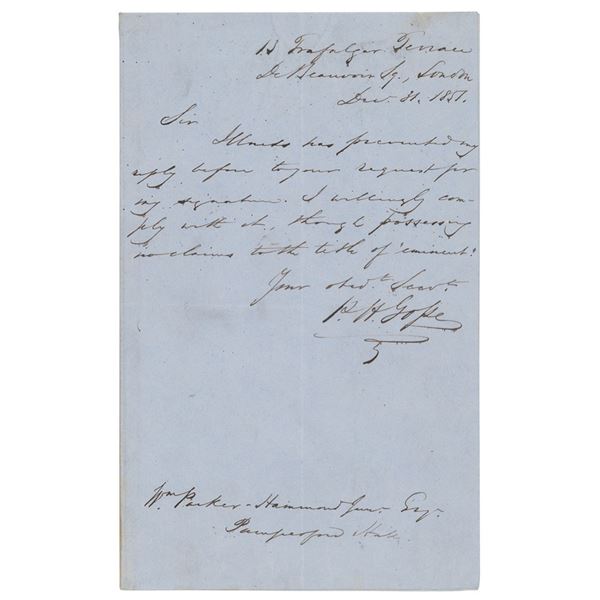 13 Trafalgar Terrace
De Beauvoir Sq., London
Dec. 31. 1851.
Sir
Illness has prevented my
reply before to your request for
my signature. I willingly com-
ply with it, though possessing
no claims to the title of 'eminent'.
Your obedt. Servt.
P. H. Gosse
Wm. Parker-Hammond Junr. Esqr.
Pampisford Hall